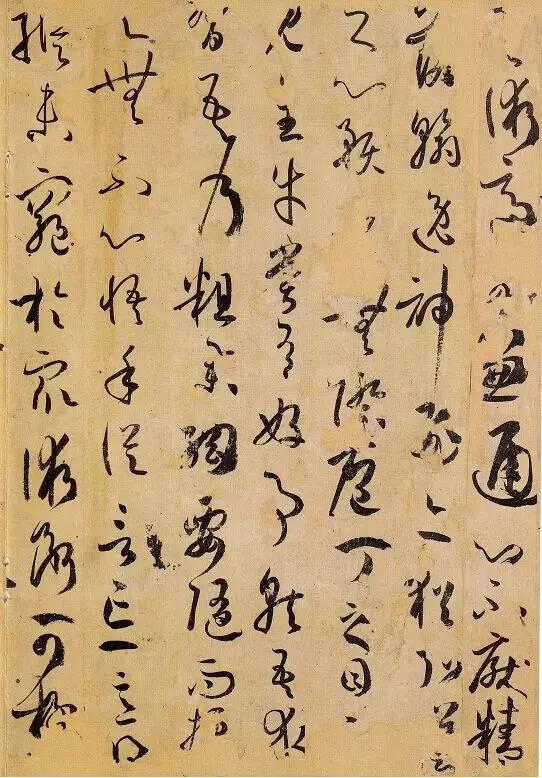 兼通心不厭精
翰逸神飛亦猶弘羊
之心預無際庖丁之目不
見全牛嘗有好事就吾求
習吾乃粗舉綱要隨而授
之無不心悟手從言忘意得
縱未窮於眾術斷可極